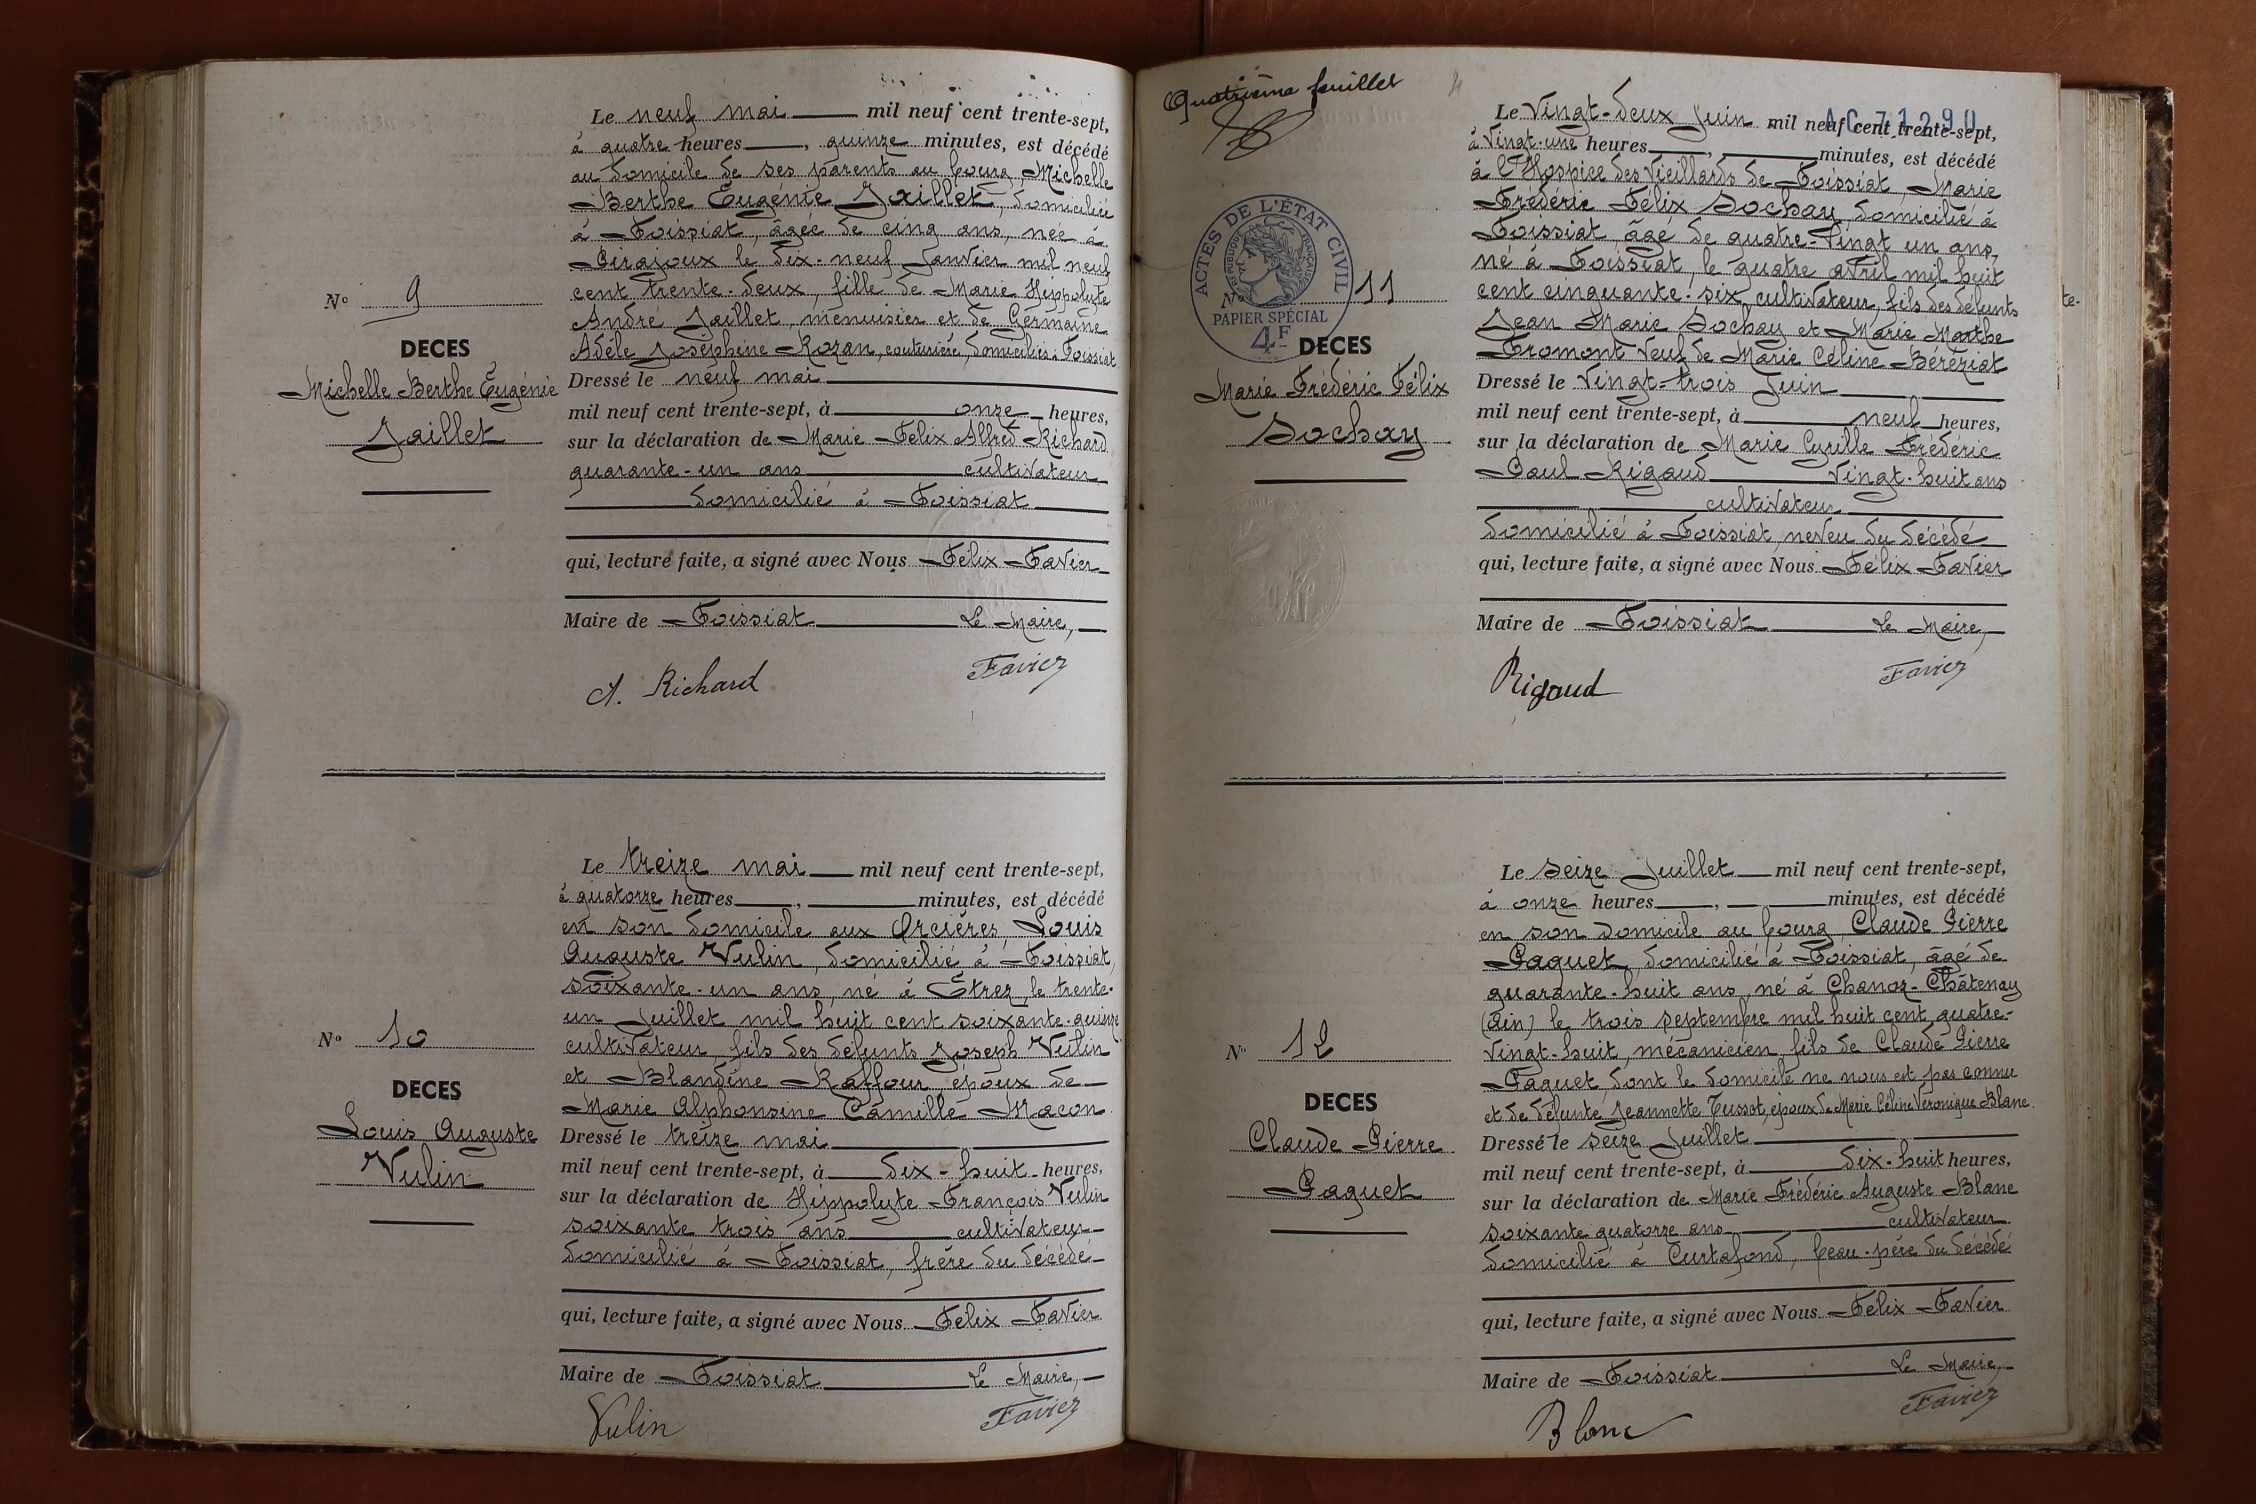 Le neuf mai mil neuf cent trente-sept,
à quatre heures, quinze minutes, est décédé
au domicile de ses parents au bourg, Michelle
Berthe Eugénie Jaillet, domiciliée
à Foissiat, âgée de cinq ans, née à
Pirajoux le dix-neuf Janvier mil neuf
cent trente-deux, fille de Marie Hippolyte
André Jaillet, menuisier et de Germaine
Adèle Joséphine Rozan, couturière, domiciliés à Foissiat
Dressé le neuf mai
mil neuf cent trente-sept, à onze heures,
sur la déclaration de Marie Félix Alfred Richard
quarante-un ans cultivateur
domicilié à Foissiat
qui, lecture faite, a signé avec Nous Félix Favier
Maire de Foissiat Le Maire,
A. Richard Favier
N° 9
DECES
Michelle Berthe Eugénie
Jaillet
Le treize mai mil neuf cent trente-sept,
à quatorze heures, minutes, est décédé
en son domicile aux Orcières, Louis
Auguste Vulin, domicilié à Foissiat,
soixante-un ans, né à Étrez, le trente-
un Juillet mil huit cent soixante-quinze
cultivateur, fils des défunts Joseph Vulin
et Blandine Raffour, époux de
Marie Alphonsine Camille Macon
Dressé le treize mai
mil neuf cent trente-sept, à dix-huit heures,
sur la déclaration de Hippolyte François Vulin
soixante trois ans cultivateur
domicilié à Foissiat, frère du décédé
qui, lecture faite, a signé avec Nous Félix Favier
Maire de Foissiat Le Maire,
Vulin Favier
N° 10
DECES
Louis Auguste
Vulin
Quatrième feuillet
4
AC 71290
Le Vingt-deux Juin mil neuf cent trente-sept,
à Vingt-une heures, minutes, est décédé
à l'Hospice des Vieillards de Foissiat, Marie
Frédéric Félix Sochay domicilié à
Foissiat, âgé de quatre-Vingt un ans,
né à Foissiat, le quatre avril mil huit
cent cinquante-six, cultivateur, fils des défunts
Jean Marie Sochay et Marie Marthe
Fromont Veuf de Marie Céline Béréziat
Dressé le Vingt-trois Juin
mil neuf cent trente-sept, à neuf heures,
sur la déclaration de Marie Cyrille Frédéric
Paul Rigaud Vingt-huit ans
cultivateur
domicilié à Foissiat, neveu du décédé
qui, lecture faite, a signé avec Nous Félix Favier
Maire de Foissiat Le Maire,
Rigaud Favier
ACTES DE L'ÉTAT CIVIL
RÉPUBLIQUE FRANÇAISE
PAPIER SPÉCIAL
4F
N° 11
DECES
Marie Frédéric Félix
Sochay
te-
Le seize Juillet mil neuf cent trente-sept,
à onze heures, minutes, est décédé
en son domicile au bourg, Claude Pierre
Paquet, domicilié à Foissiat, âgé de
quarante-huit ans, né à Chanoz-Châtenay
(Ain) le trois septembre mil huit cent quatre-
Vingt-huit, mécanicien, fils de Claude Pierre
Paquet, dont le domicile ne nous est pas connu
et de défunte Jeannette Tussot, époux de Marie Céline Véronique Blanc
Dressé le seize Juillet
mil neuf cent trente-sept, à dix-huit heures,
sur la déclaration de Marie Frédéric Auguste Blanc
soixante quatorze ans cultivateur
domicilié à Curtafond, beau-père du décédé
qui, lecture faite, a signé avec Nous Félix Favier
Maire de Foissiat Le Maire,
Blanc Favier
N° 12
DECES
Claude Pierre
Paquet